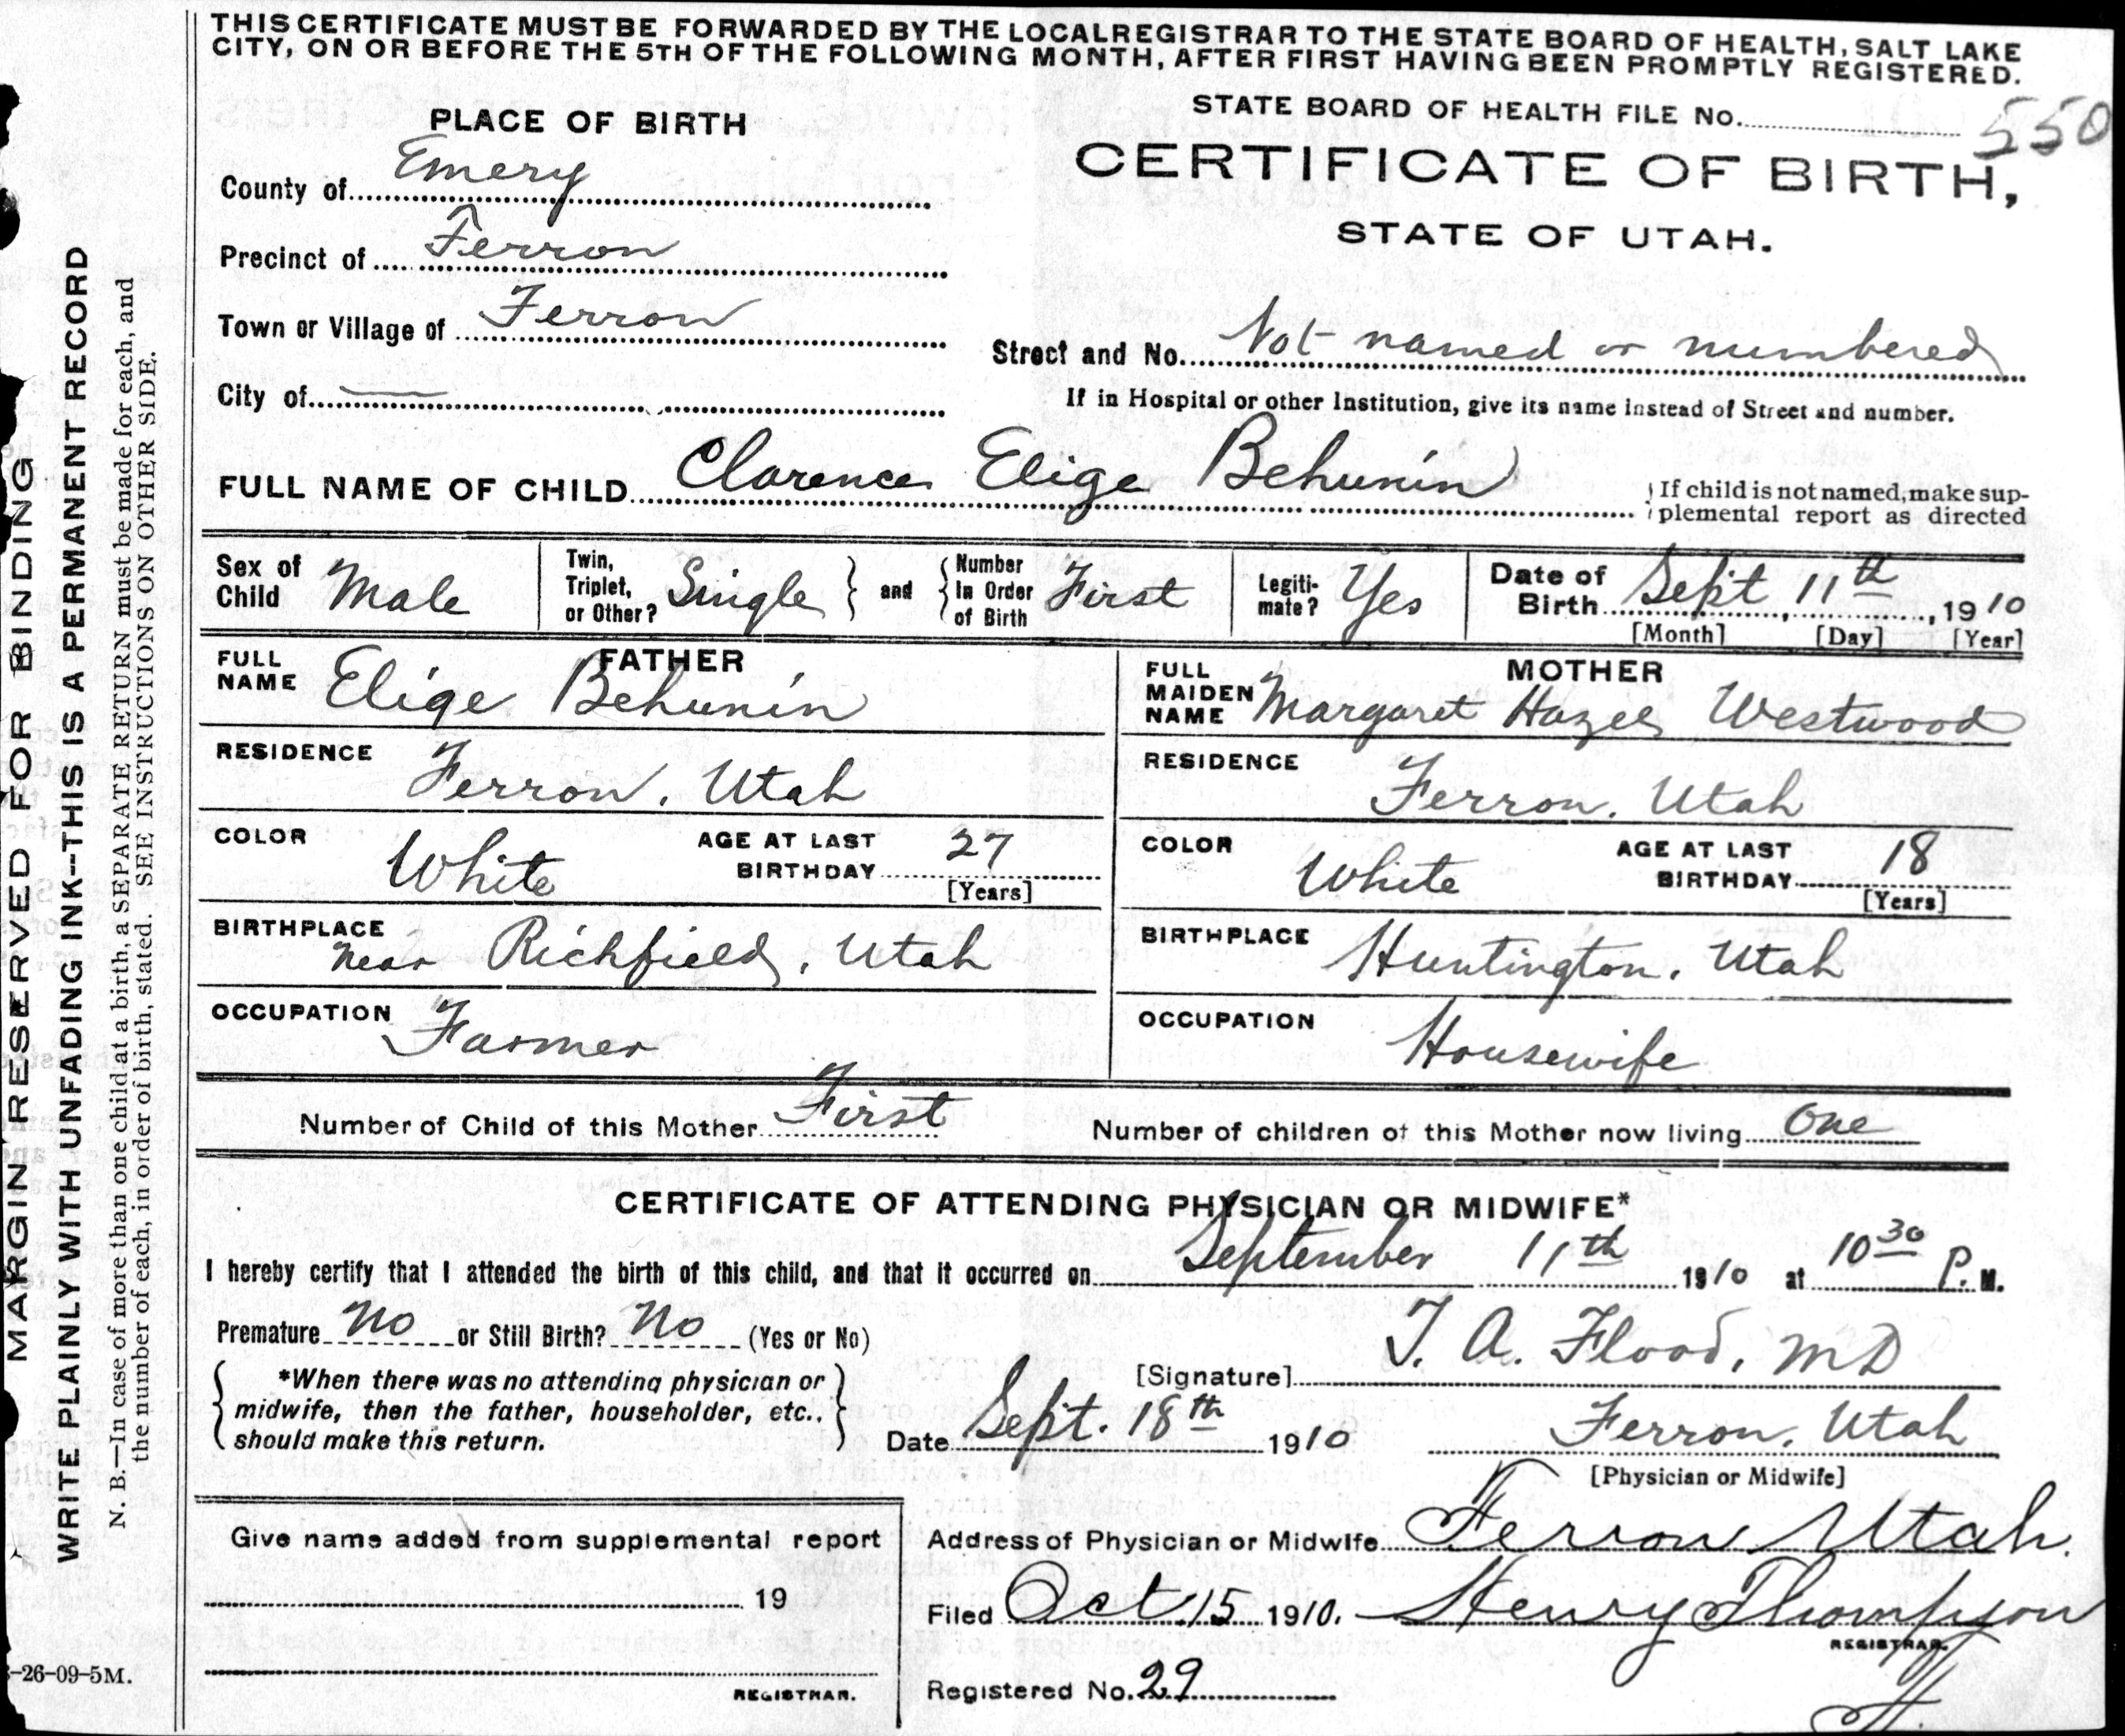 THIS CERTIFICATE MUST BE FORWARDED BY THE LOCAL REGISTRAR TO THE STATE BOARD OF HEALTH, SALT LAKE
CITY, ON OR BEFORE THE 5TH OF THE FOLLOWING MONTH, AFTER FIRST HAVING BEEN PROMPTLY REGISTERED.
PLACE OF BIRTH
STATE BOARD OF HEALTH FILE No. 550
CERTIFICATE OF BIRTH,
STATE OF UTAH.
County of Emery
Precinct of Ferron
Town or Village of Ferron
Street and No. Not named or numbered
City of —
If in Hospital or other Institution, give its name instead of Street and number.
FULL NAME OF CHILD Clarence Elige Behunin
If child is not named, make sup-
plemental report as directed
Sex of Child Male
Twin, Triplet, or Other? Single and Number In Order of Birth First
Legiti-mate? Yes
Date of Birth Sept 11th, 1910
[Month] [Day] [Year]
FATHER
FULL NAME Elige Behunin
RESIDENCE Ferron, Utah
COLOR White AGE AT LAST BIRTHDAY 27
[Years]
BIRTHPLACE near Richfield, Utah
OCCUPATION Farmer
MOTHER
FULL MAIDEN NAME Margaret Hazel Westwood
RESIDENCE Ferron, Utah
COLOR White AGE AT LAST BIRTHDAY 18
[Years]
BIRTHPLACE Huntington, Utah
OCCUPATION Housewife
Number of Child of this Mother First Number of children of this Mother now living One
CERTIFICATE OF ATTENDING PHYSICIAN OR MIDWIFE*
I hereby certify that I attended the birth of this child, and that it occurred on September 11th 1910 at 10 30 P. M.
Premature No or Still Birth? No (Yes or No)
*When there was no attending physician or
midwife, then the father, householder, etc.,
should make this return.
[Signature] T. A. Flood, MD
Date Sept. 18th 1910 Ferron, Utah
[Physician or Midwife]
Give name added from supplemental report
19
REGISTRAR.
Address of Physician or Midwife Ferron Utah.
Filed Oct. 15 1910. Henry Thompson
REGISTRAR.
Registered No. 29
MARGIN RESERVED FOR BINDING
WRITE PLAINLY WITH UNFADING INK--THIS IS A PERMANENT RECORD
N. B.—In case of more than one child at a birth, a SEPARATE RETURN must be made for each, and
the number of each, in order of birth, stated. SEE INSTRUCTIONS ON OTHER SIDE.
-26-09-5M.